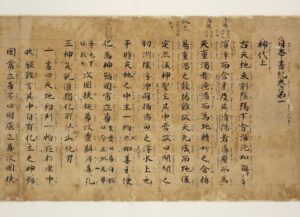 日本書紀巻第一
神代上
古天地未剖陰陽不分渾沌如鷄子
溟涬而含牙及其清陽者薄靡而為
天重濁者淹滯而為地精妙之合搏
易重濁之凝竭難故天先成而地後
定然後神聖生其中焉故曰開闢之
初洲壤浮漂譬猶游魚之浮水上也
于時天地之中生一物狀如葦牙便
化為神号國常立尊
次國狹槌尊次豊斟渟尊凡
三神矣乾道獨化所以成此純男
一書曰天地初判一物在於虛中
狀貌難言其中自有化生之神号
國常立尊亦曰國底立尊次國狹